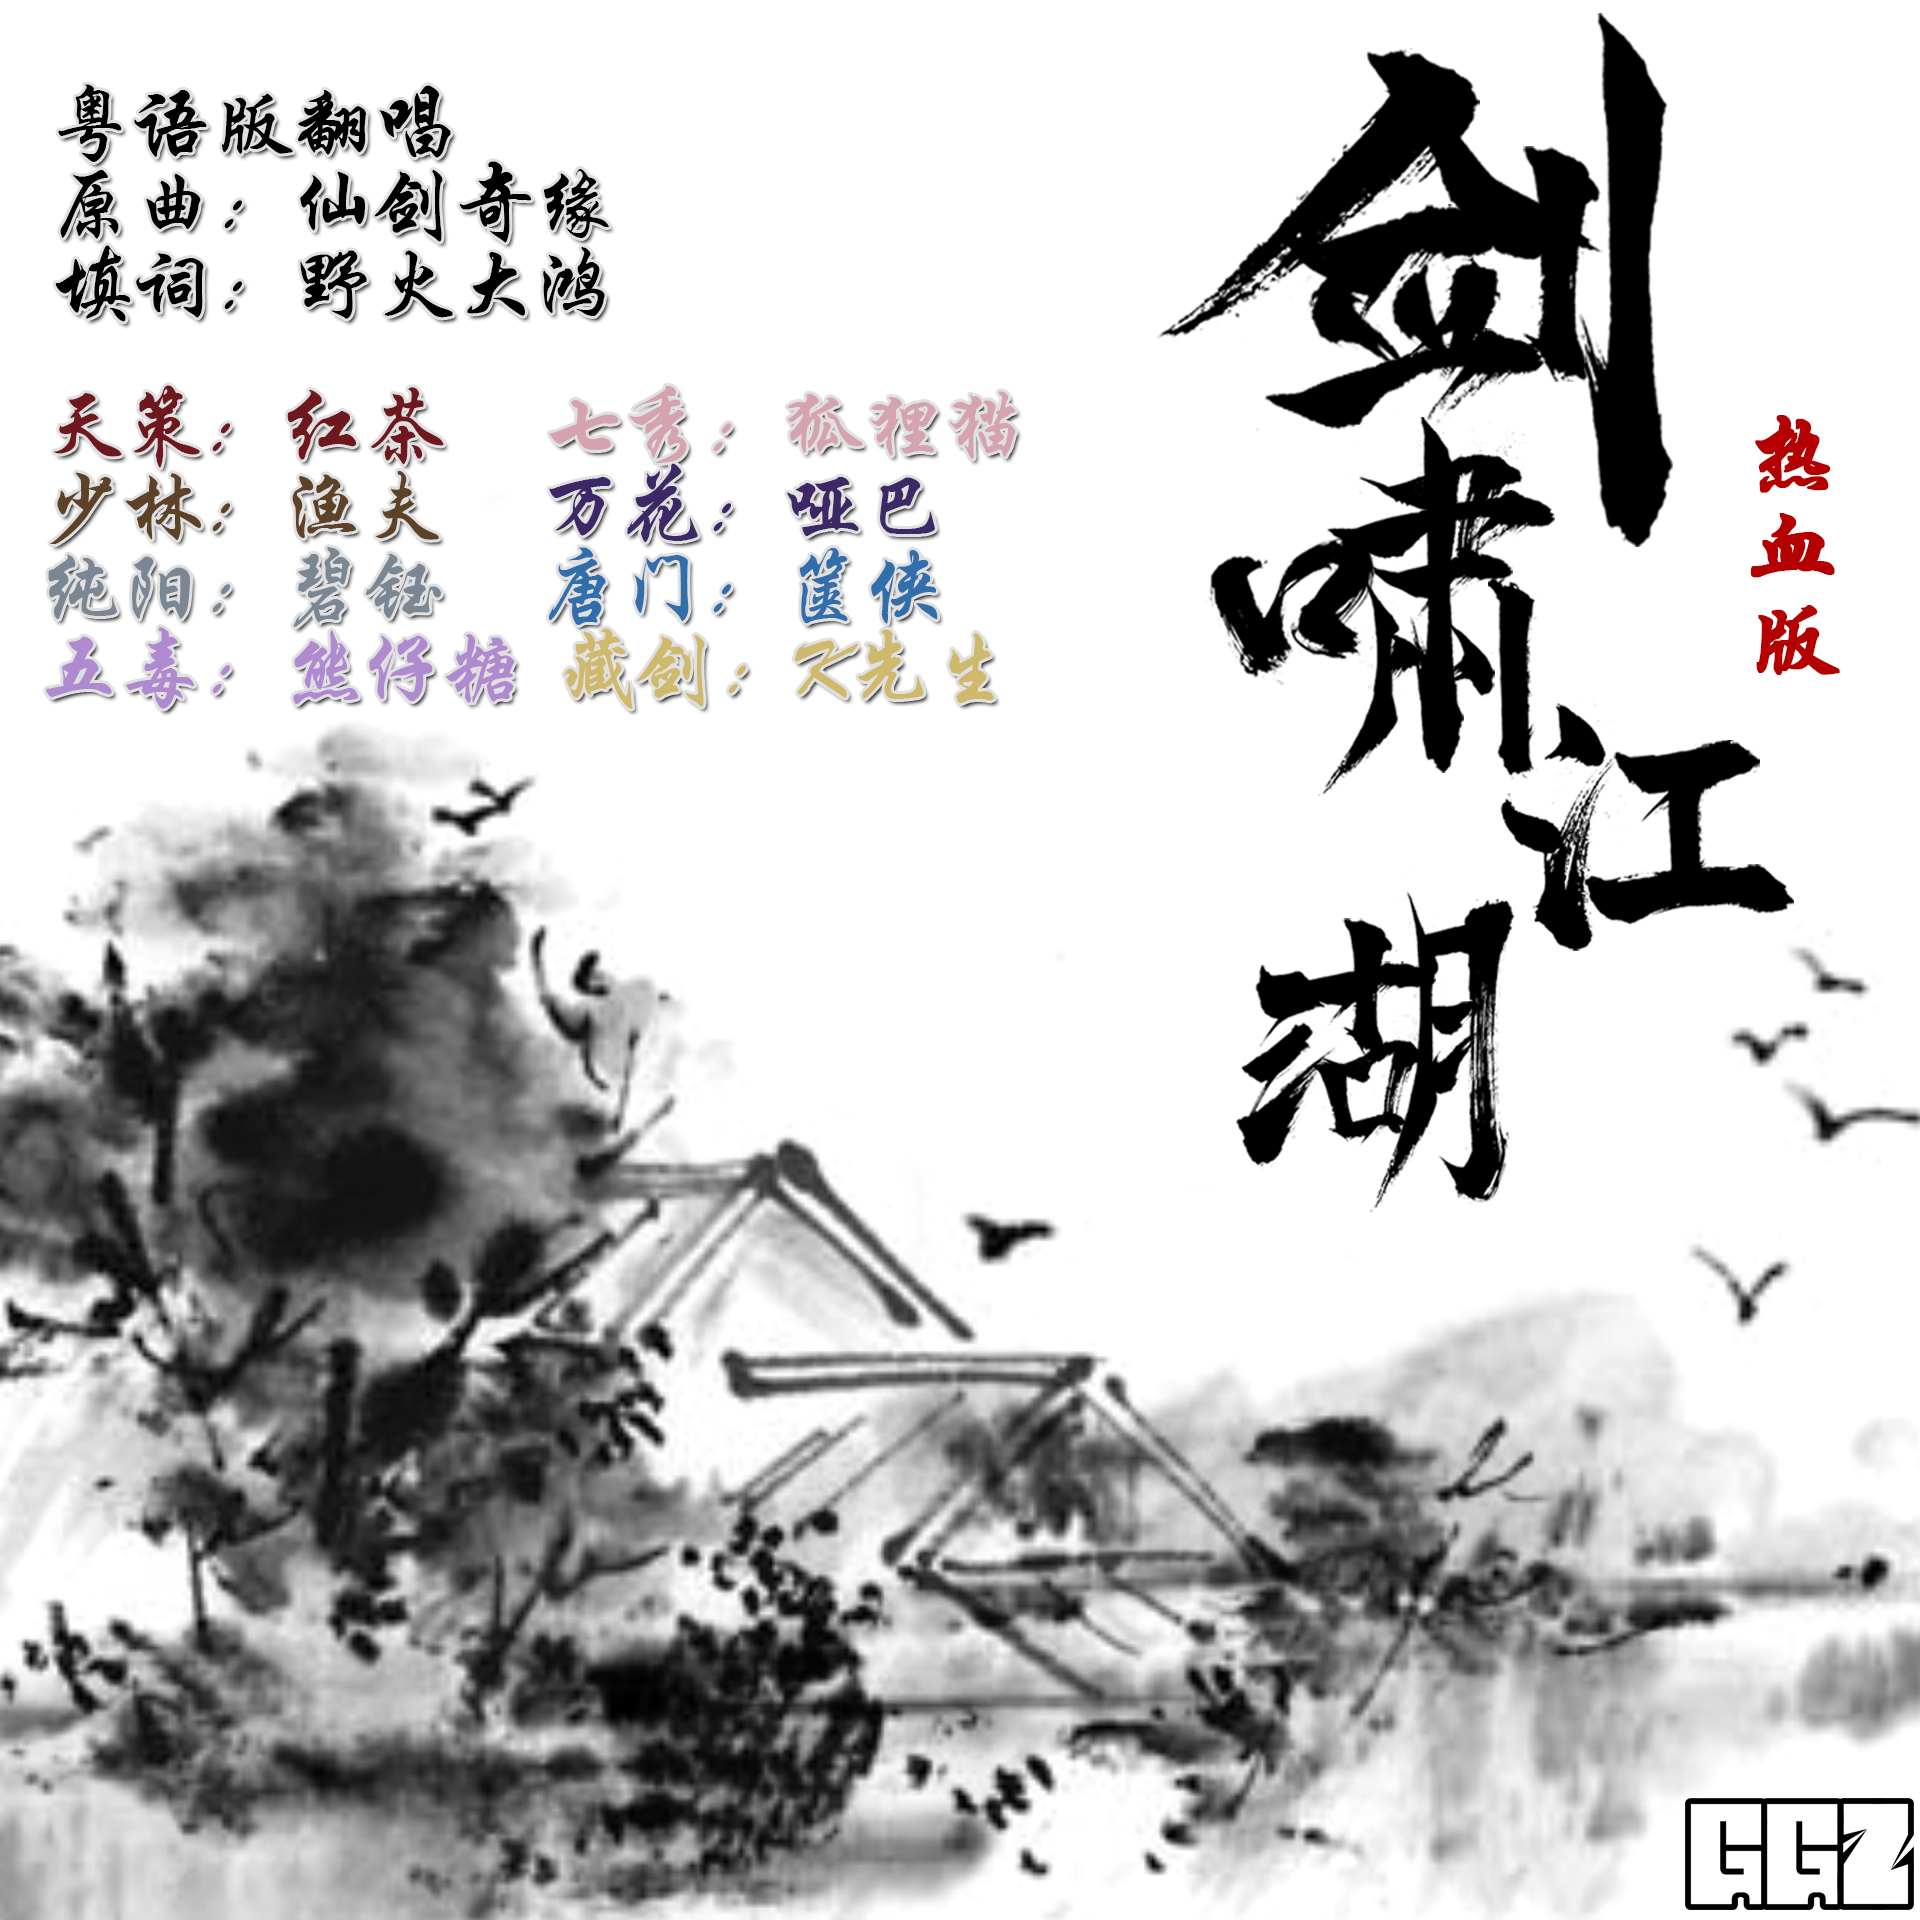 粤语版翻唱
原曲：仙剑奇缘
填词：野火大鸿
天策：红茶 七秀：狐狸猫
少林：渔夫 万花：哑巴
纯阳：碧钰 唐门：箧侠
五毒：熊仔糖 藏剑：K先生
剑啸江湖
热血版
GGZ